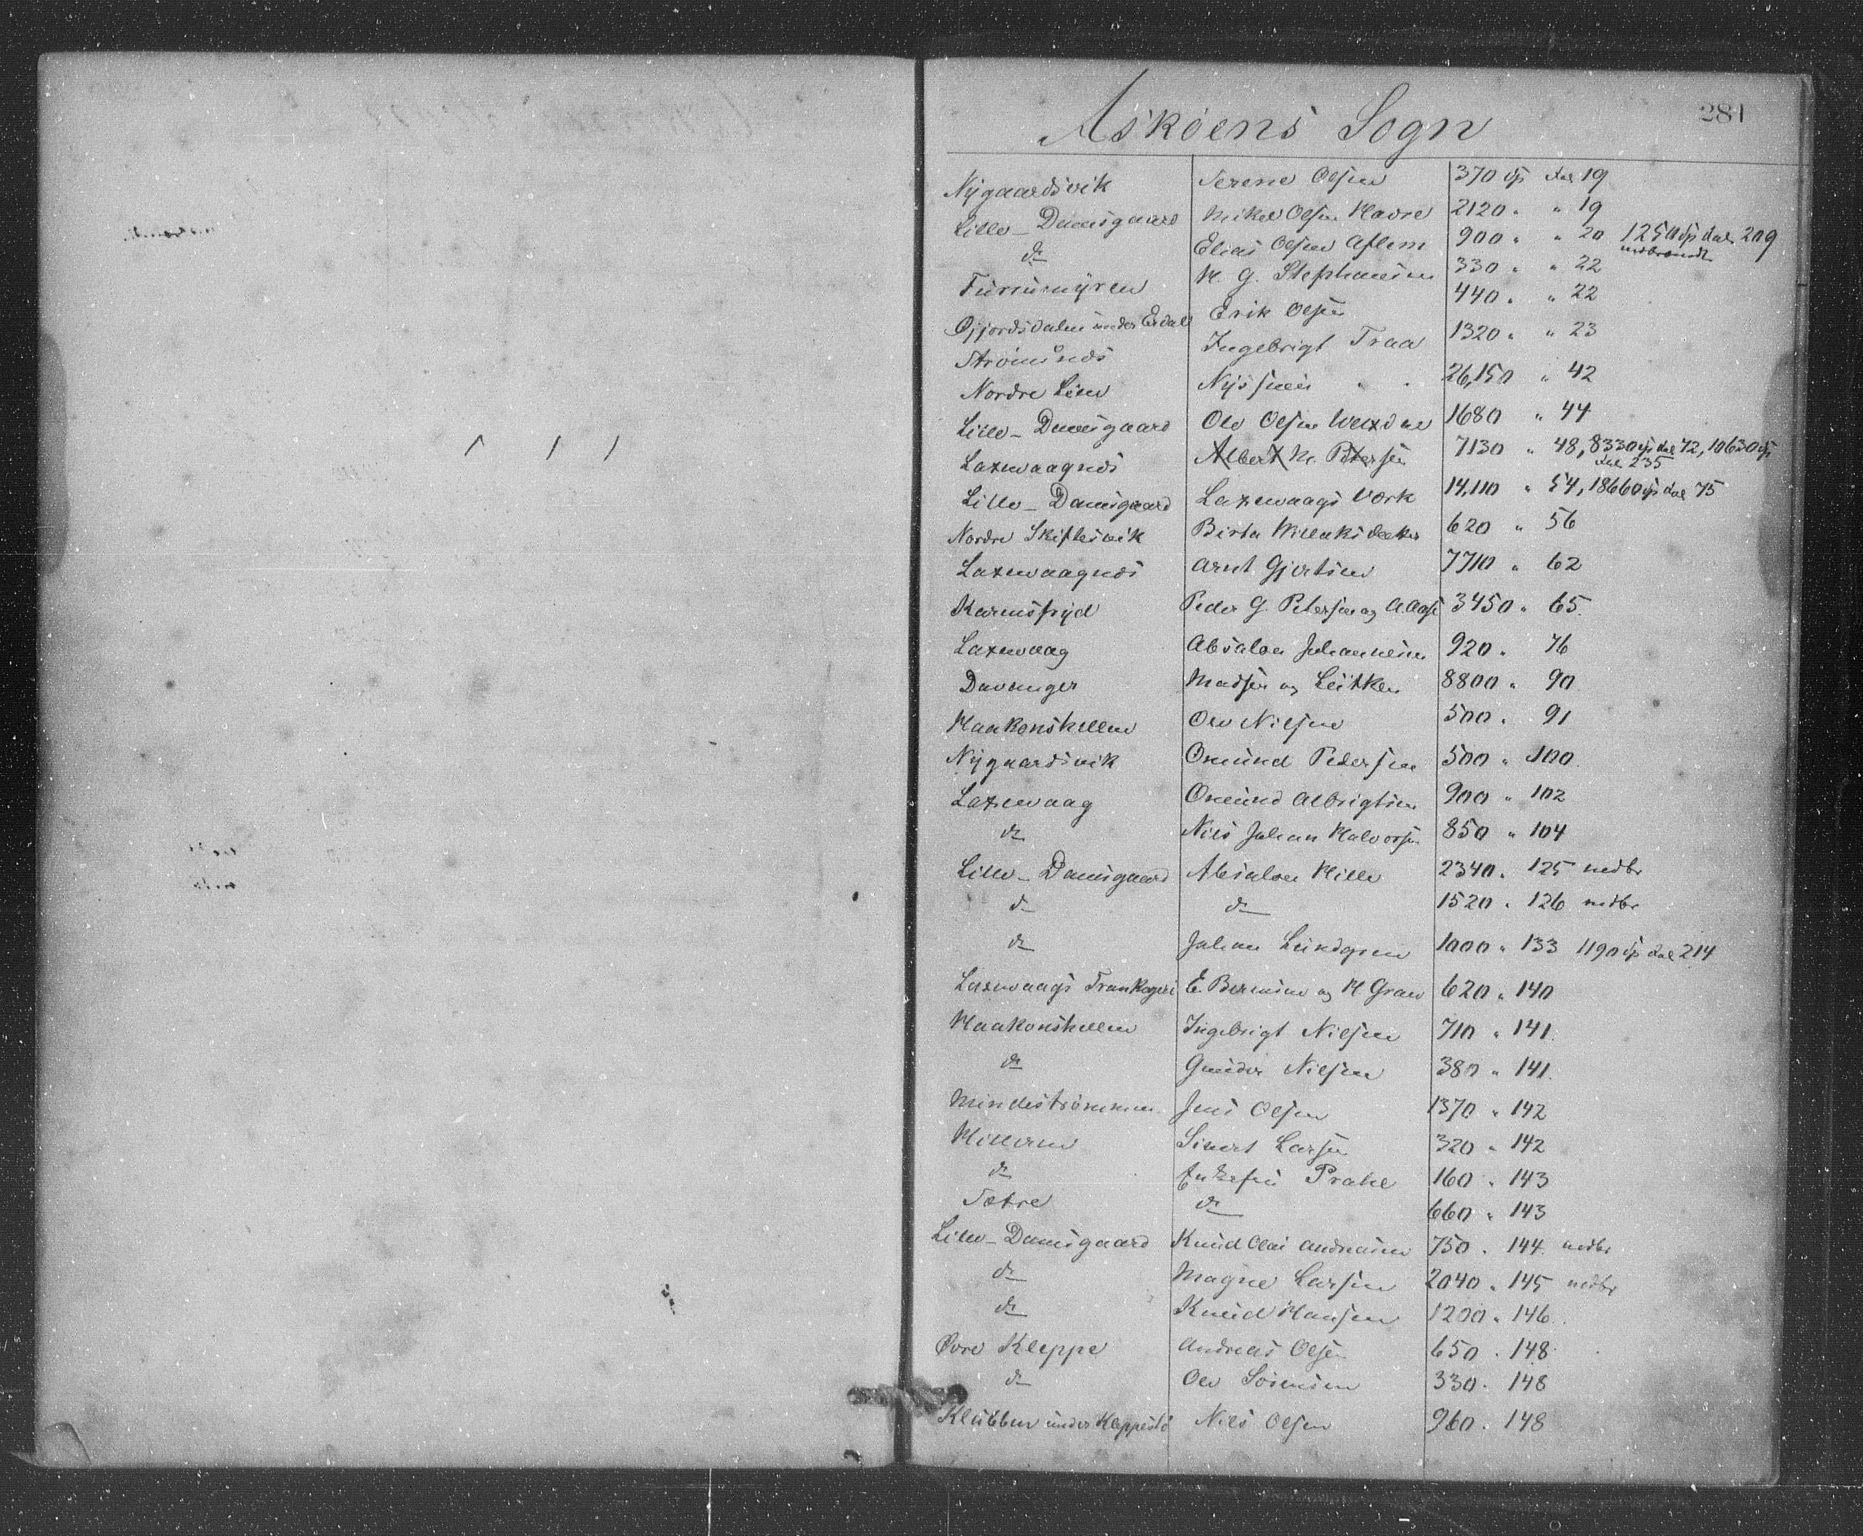 Askøens Sogn 281
Nygaardsvik Serene Olsen 370 Sp fol 19
Lille-Damsgaard Mikel Olsen Havre 2120 " " 19
do Elias Olsen Aflem 900 " " 20 1250 Sp fol 209
nedbrændt
Furumyren H. G. Stephansen 330 " " 22
Øfjordsdalen under Erdal Erik Olsen 440 " " 22
Strømsnæs Ingebrigt Traa 1320 " " 23
Nordre Lien 26,150 " 42
Lille-Damsgaard Ole Olsen 1680 " 44
Laxevaagnæs Albert M. Petersen 7130 " 48, 8330 Sp fol 72, 10630 Sp
fol 235
Lille-Damsgaard Laxevaags Værk 14,110 " 54, 18660 Sp fol 75
Nordre Skiftesvik Birta Willeksdatter 620 " 56
Laxevaagnæs Arnt Gjertsen 7710 " 62
Karensfryd Peder G. Petersen og 3450 " 65.
Laxevaag Absalon Johannesen 920 " 76
Davanger Madsen og Leitken 8800 " 90
Haakonshellen Ole Nilsen 500 " 91
Nygaardsvik Omund Pedersen 500 " 100
Laxevaag Omund Albrigtsen 900 " 102
do Nils Johan Halvorsen 850 " 104
Lille-Damsgaard Absalon Hille 2340 " 125 nedbr
do do 1520 " 126 nedbr
do Johan Lundgren 1000 " 133 1190 Sp fol 214
Laxevaags Trankogeri E. Berensen og H Gran 620 " 140
Haakonshellen Ingebrigt Nilsen 710 " 141.
do Gunder Nilsen 380 " 141.
Mindestrømmen Jens Olsen 1370 " 142
Hilleren Sivert Larsen 320 " 142
do Prahl 160 " 143
Sætre do 660 " 143
Lille-Damsgaard Knud Olai Andreasen 750 " 144 nedbr
do Magne Larsen 2040 " 145 nedbr
do Knud Hansen 1200 " 146
Øvre Kleppe Andreas Olsen 650 " 148
do Ole Sørensen 330 " 148
Klubben under Kleppestø Nils Olsen 960 " 148